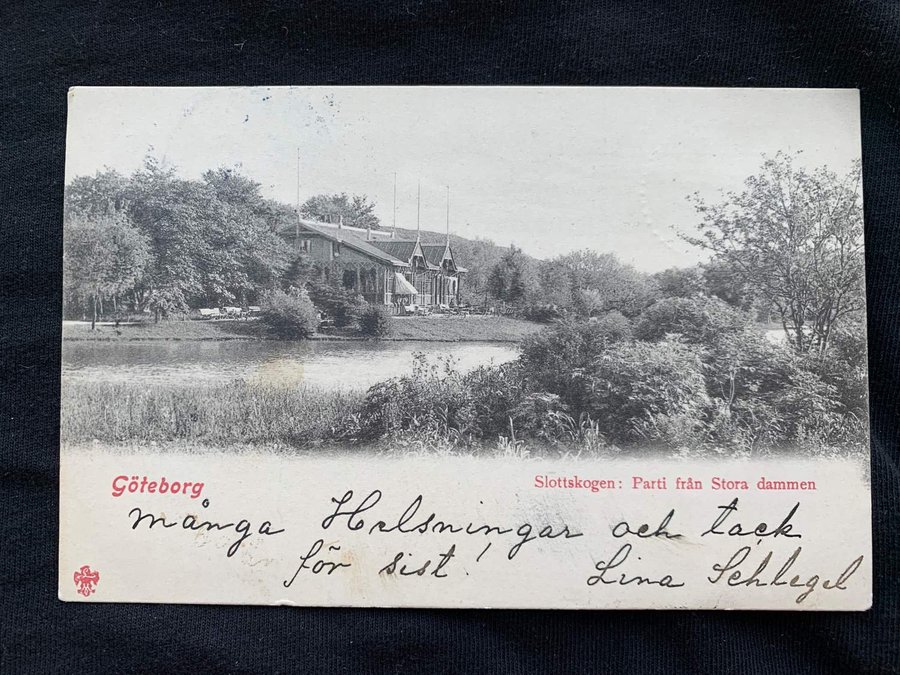 Göteborg
Slottskogen: Parti från Stora dammen
många Helsningar och tack
för sist! Lina Schlegel